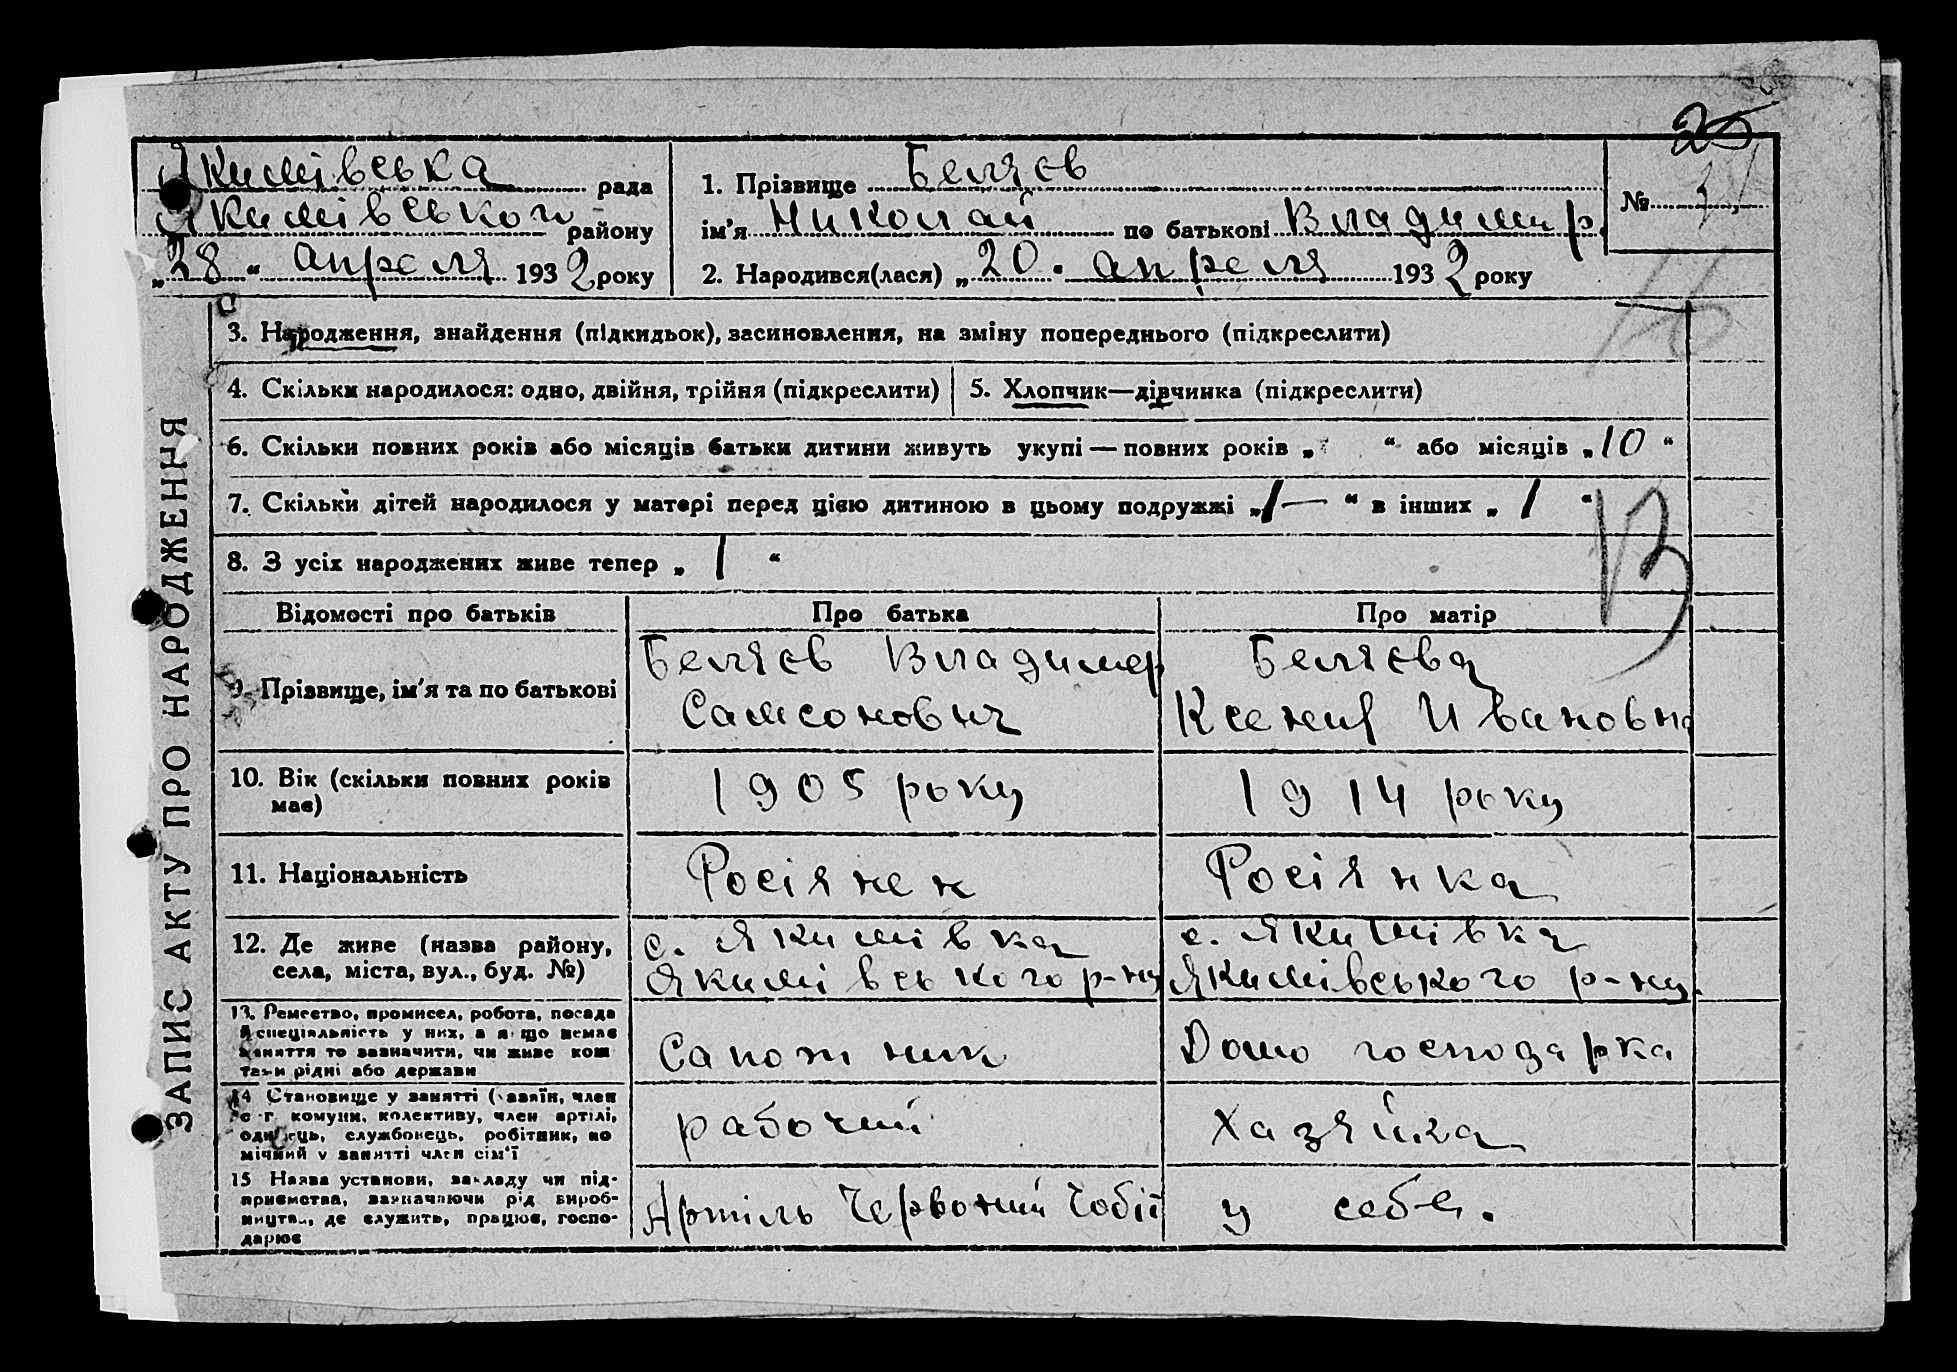 25
Якимівська рада
Якимівського району
„28“ апреля 1932 року
1. Прізвище Беляєв
ім'я Николай по батькові Владимир.
2. Народився(лася) „20“ апреля 1932 року
№
16
3. Народження, знайдення (підкидьок), засиновлення, на зміну попереднього (підкреслити)
4. Скільки народилося: одно, двійня, трійня (підкреслити)
5. Хлопчик—дівчинка (підкреслити)
6. Скільки повних років або місяців батьки дитини живуть укупі — повних років „ “ або місяців „10“
7. Скільки дітей народилося у матері перед цією дитиною в цьому подружжі „/—“ в інших „1“
8. З усіх народжених живе тепер „1“
ЗАПИС АКТУ ПРО НАРОДЖЕННЯ
Відомості про батьків
Про батька
Про матір
9. Прізвище, ім'я та по батькові
Беляєв Владимер
Самсонович
Беляєва
Ксения Ивановна
10. Вік (скільки повних років
має)
1905 року
1914 року
11. Національність
Росіянен
Росіянка
12. Де живе (назва району,
села, міста, вул., буд. №)
с. Якимівка
Якимівського р-ну
с. Якимівка
Якимівського р-ну.
13. Ремество, промисел, робота, посада
й спеціяльність у них, а якщо немає
заняття то зазначити, чи живе кош
тами рідні або держави
Сапожник
Домогосподарка
14 Становище у занятті (хазяїн, член
с-г. комуни, колективу, член артілі,
одинець, службовець, робітник, по
мічний у занятті член сім'ї
рабочий
Хазяйка
15 Назва установи, закладу чи під-
приємства, зазначаючи рід вироб-
ництва, де служить, працює, госпо-
дарює
Артіль Червоний Чобіт
у себе.